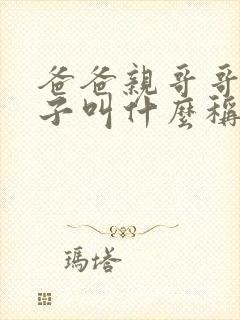 爸爸親哥哥
子叫什麼稱
瑪塔